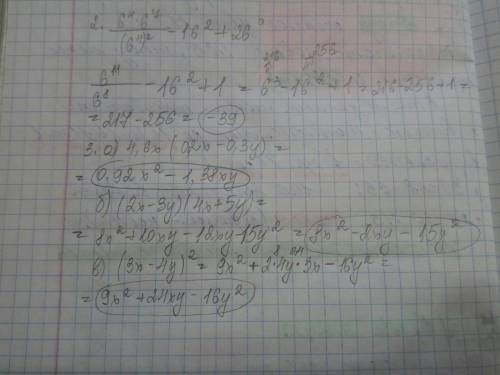 2. (6⁴ · 6⁷)/(6⁴)² - 16² + 26⁰
216 256
6¹¹/6⁸ - 16² + 1 = 6³ - 16² + 1 = 216 - 256 + 1 =
= 217 - 256 = -39
3. а) 4,6x (0,2x - 0,3y) =
= 0,92x² - 1,38xy
б) (2x - 3y)(4x + 5y) =
= 8x² + 10xy - 18xy - 15y² = 8x² - 8xy - 15y²
в) (3x - 4y)² = 9x² + 2 · 4y · 3x - 16y² =
= 9x² + 24xy - 16y²